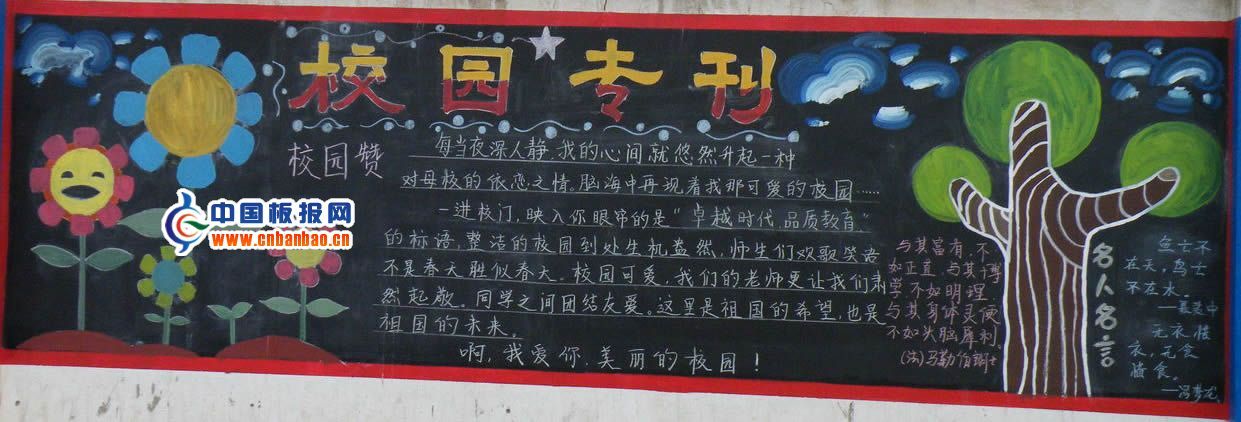 校园专刊
校园赞
每当夜深人静,我的心间就悠然升起一种
对母校的依恋之情。脑海中再现着我那可爱的校园……
一进校门,映入你眼帘的是“卓越时代,品质教育”
的标语,整洁的校园到处生机盎然,师生们欢歌笑语
不是春天胜似春天。校园可爱,我们的老师更让我们肃
然起敬。同学之间团结友爱。这里是祖国的希望,也是
祖国的未来。
啊,我爱你,美丽的校园!
中国板报网
www.cnbanbao.cn
与其富有,不
如正直,与其博
学不如明理,
与其身体灵便
不如头脑犀利。
(法)马勒伯朗士
名人名言
鱼士不
在天,鸟士
不在水。
无衣惜
衣,无食
惜食。
——冯梦龙